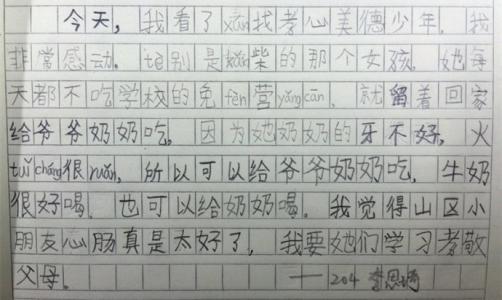 今天，我看了xún找孝心美德少年，我
非常感动。tè别是kǎn柴的那个女孩，她每
天都不吃学校的免fèn营yǎngcān，就留着回家
给爷爷奶奶吃，因为她奶奶的牙不好，火
tuǐcháng很ruǎn，所以可以给爷爷奶奶吃，牛奶
很好喝，也可以给奶奶喝。我觉得山区小
朋友心肠真是太好了，我要她们学习孝敬
父母。 ——204 李思